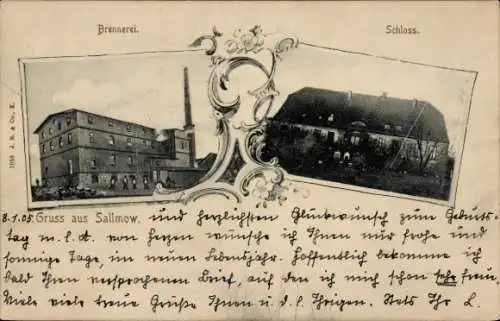 Brennerei.
Schloss.
1058 J. B. & Co., E.
8.1.05. Gruss aus Sallmow. und herzlichsten Glückwunsch zum Geburts-
tag m. l. d. von Herzen wünsche ich Ihnen nur frohe und
sonnige Tage, im neuen Lebensjahr. Hoffentlich bekomme ich
bald Ihren versprochenen Brief, auf den ich mich schon sehr freue.
Viele viele treue Grüße Ihnen und d. l. Ihrigen. Stets Ihr L.